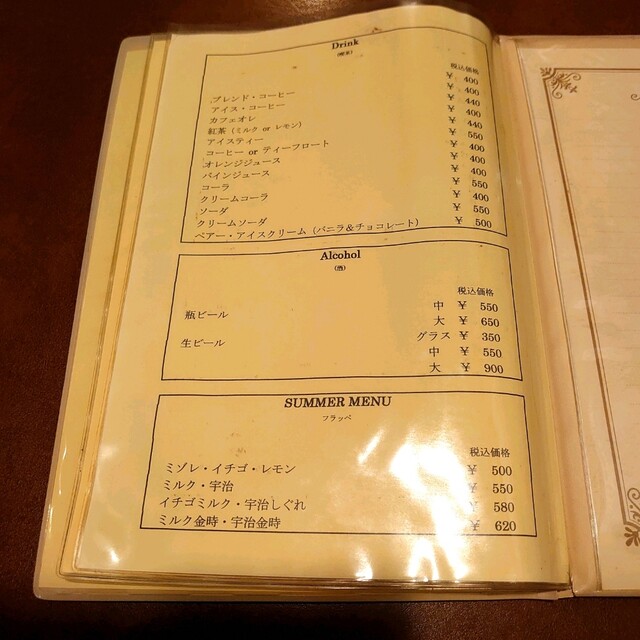 Drink
税込価格
ブレンド・コーヒー ¥ 400
アイス・コーヒー ¥ 400
カフェオレ ¥ 440
紅茶（ミルク or レモン） ¥ 400
アイスティー ¥ 440
コーヒー or ティーフロート ¥ 550
オレンジジュース ¥ 400
パインジュース ¥ 400
コーラ ¥ 400
クリームコーラ ¥ 550
ソーダ ¥ 400
クリームソーダ ¥ 550
ペアー・アイスクリーム（バニラ＆チョコレート） ¥ 500
Alcohol
（酒）
税込価格
瓶ビール 中 ¥ 550
大 ¥ 650
生ビール グラス ¥ 350
中 ¥ 550
大 ¥ 900
SUMMER MENU
フラッペ
税込価格
ミゾレ・イチゴ・レモン ¥ 500
ミルク・宇治 ¥ 550
イチゴミルク・宇治しぐれ ¥ 580
ミルク金時・宇治金時 ¥ 620